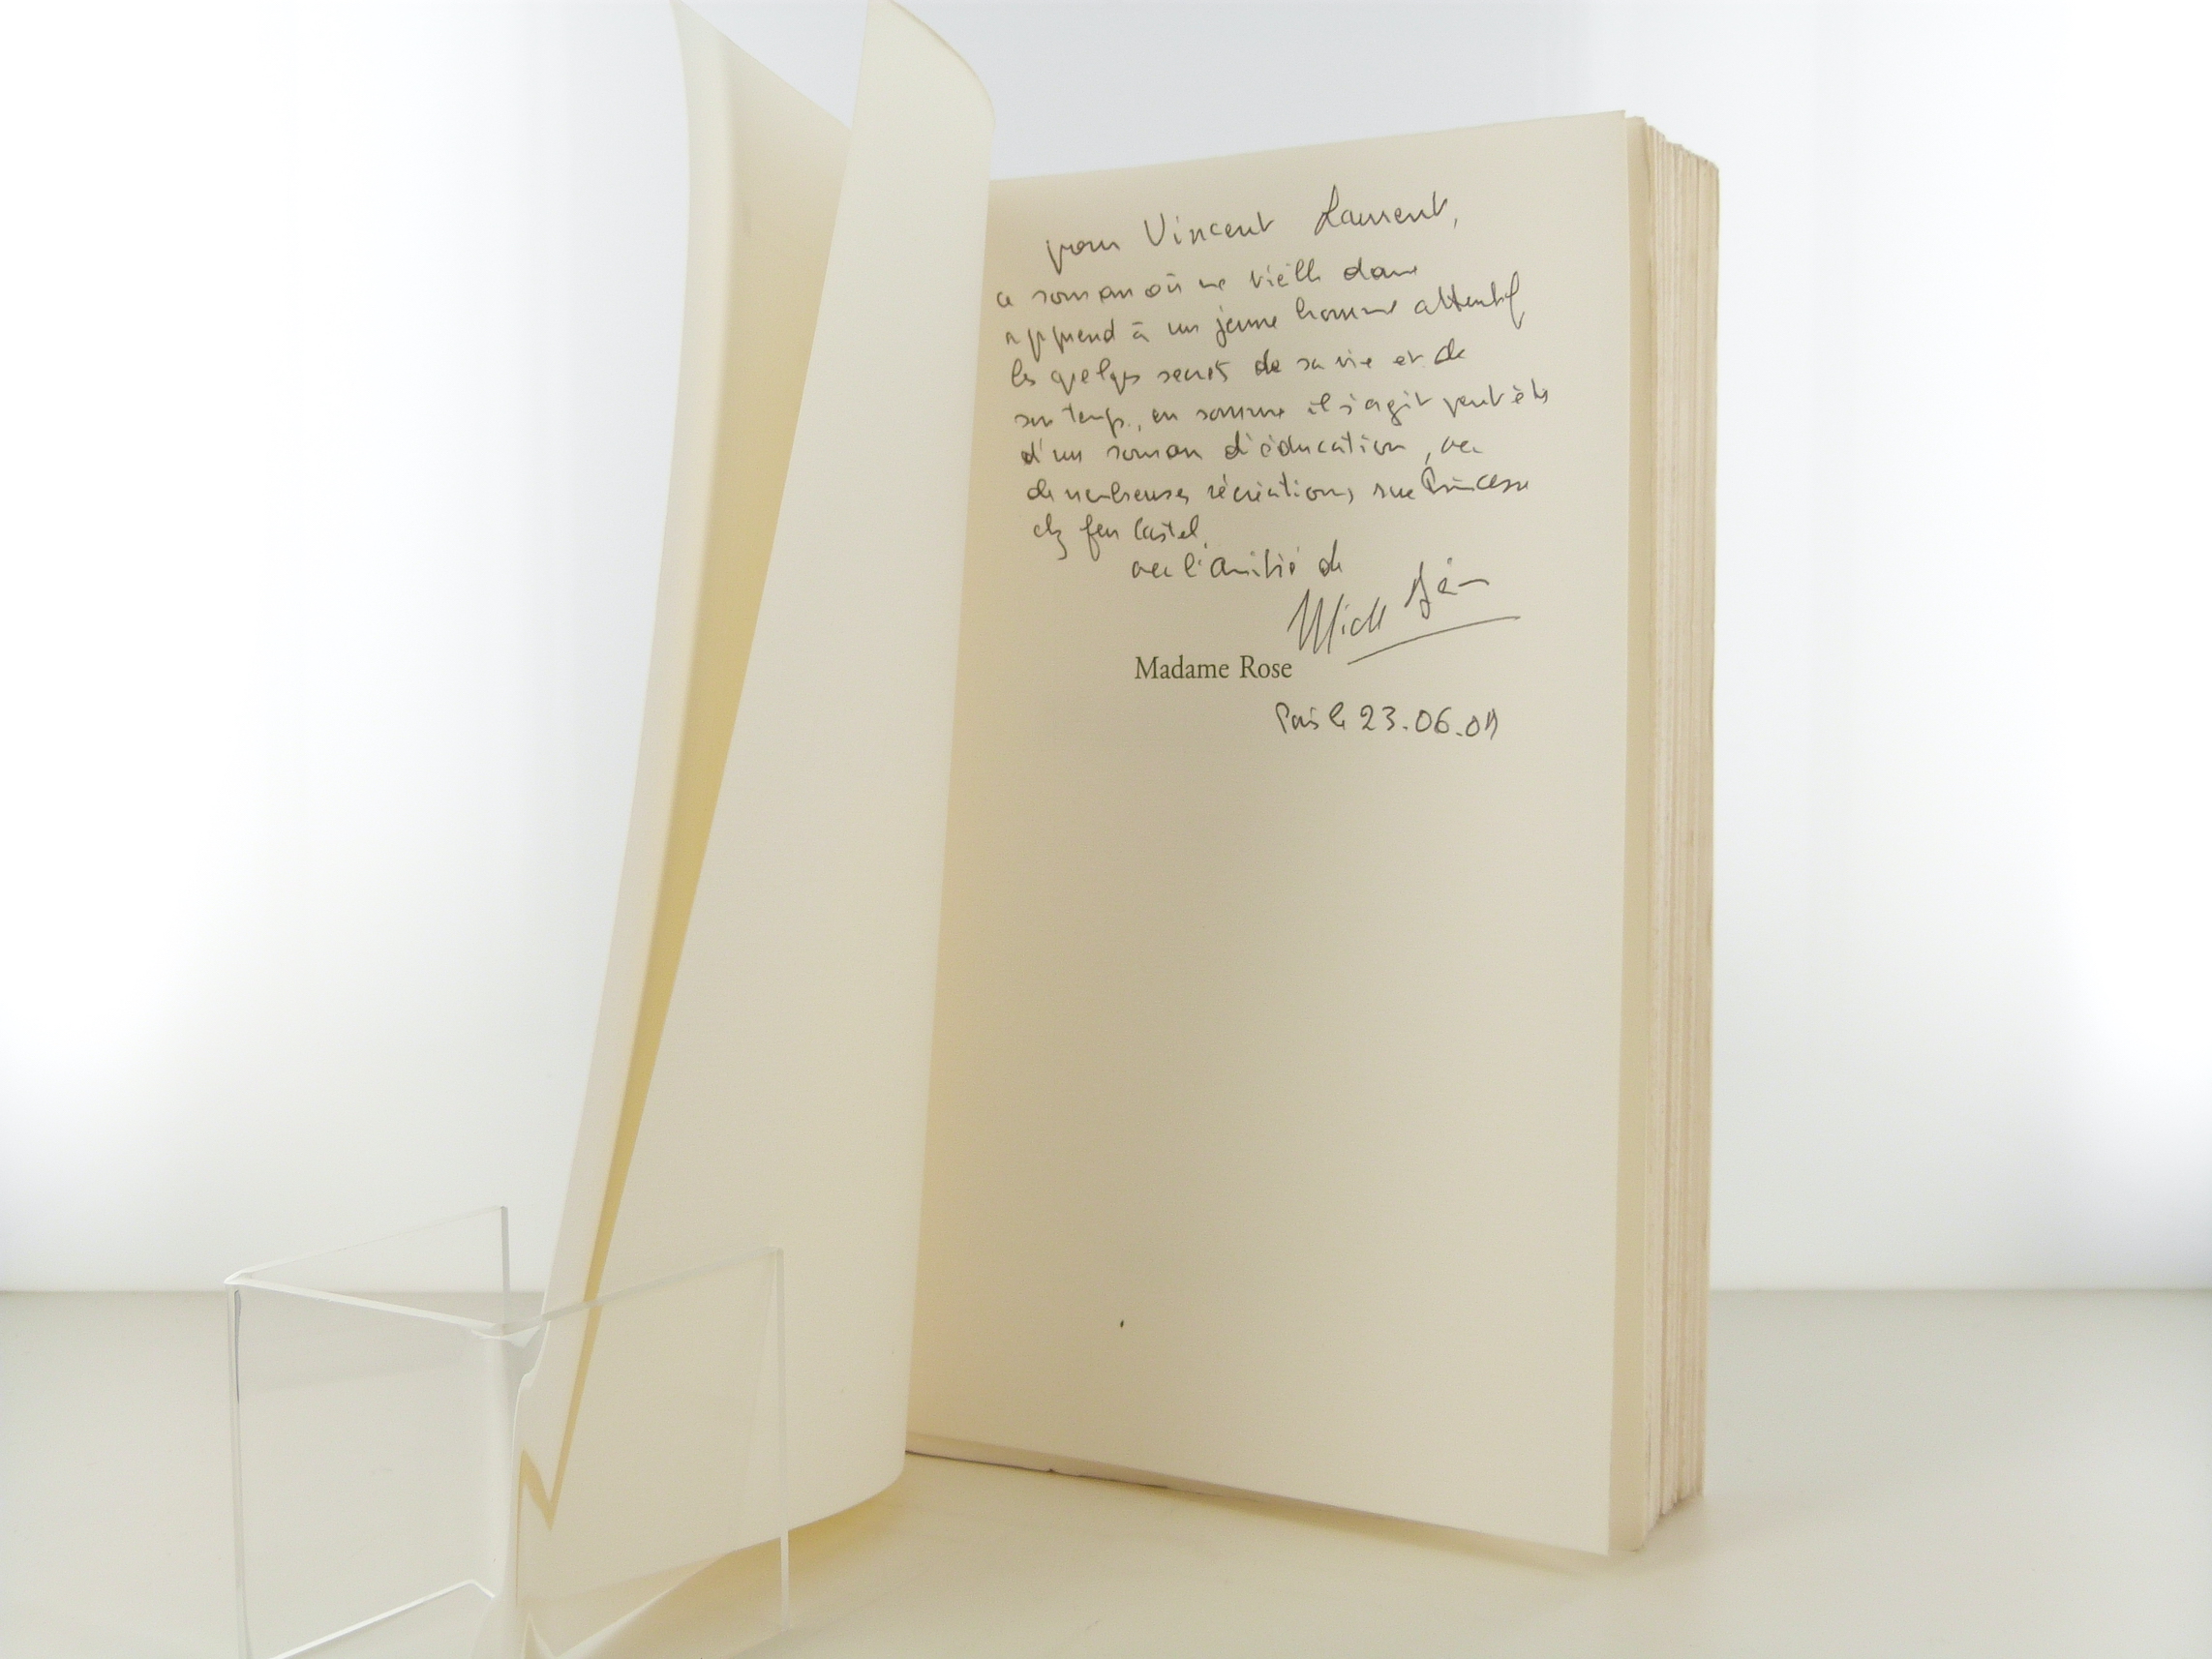 pour Vincent Laurent,
ce roman où une vieille dame
apprend à un jeune homme attentif
les quelques secrets de sa vie et de
son temps, en somme il s'agit peut être
d'un roman d'éducation, avec
de nombreuses récréations rue Princesse
chez feu Castel,
avec l'amitié de
Madame Rose
Paris le 23.06.01